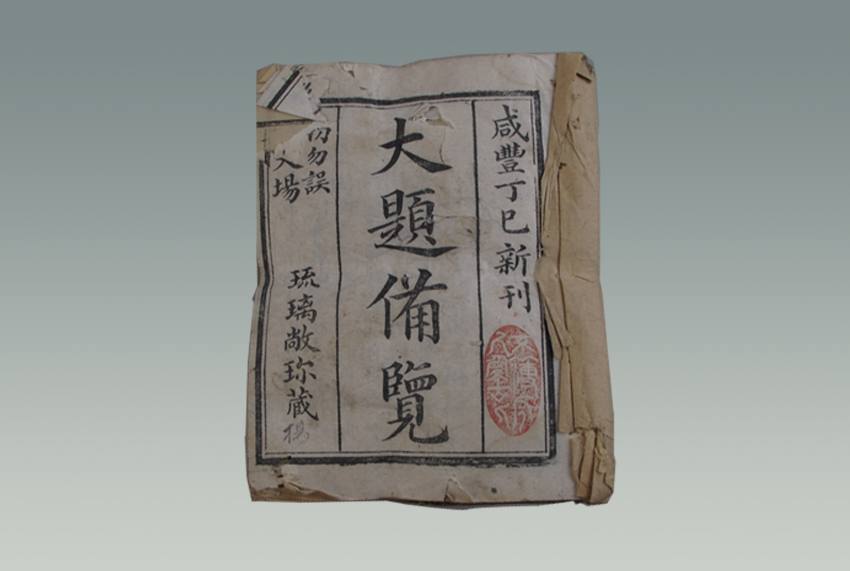 咸豐丁巳新刊
大題備覽
内勿誤
入場
琉璃敞珎藏